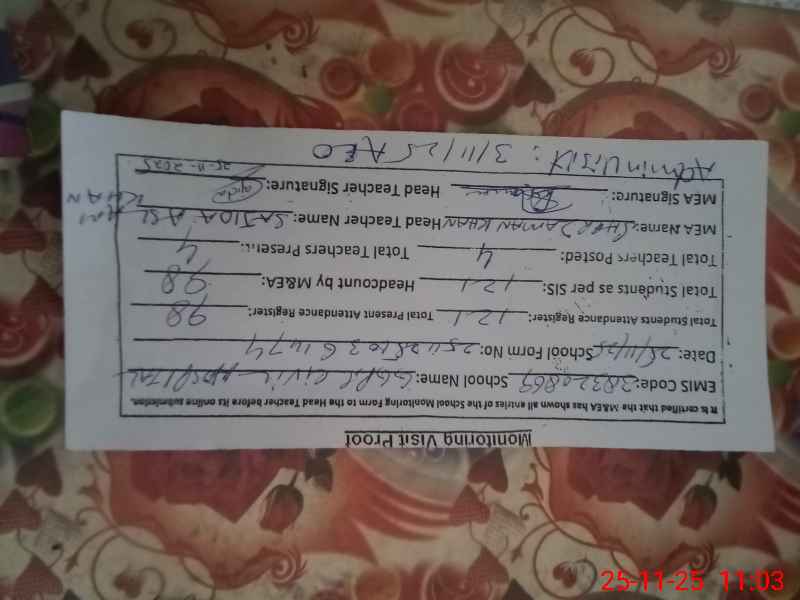 Monitoring Visit Proof
It is certified that the M&EA has shown all entries of the School Monitoring Form to the Head Teacher before its online submission.
EMIS Code: 38320869 School Name: GGPS CIVIL HOSPITAL
Date: 25/11/25 School Form No:
Total Students Attendance Register: 121 Total Present Attendant Register: 98
Total Students as per SIS: 121 Headcount by M&EA: 98
Total Teachers Posted: 4 Total Teachers Present: 4
MEA Name: SHER ZAMAN KHAN Head Teacher Name: SAJIDA ASL
KHAN
MEA Signature: Head Teacher Signature: Sajida
25-11-2025
Admin Visit: 3/11/25 AEO
25-11-25 11:03